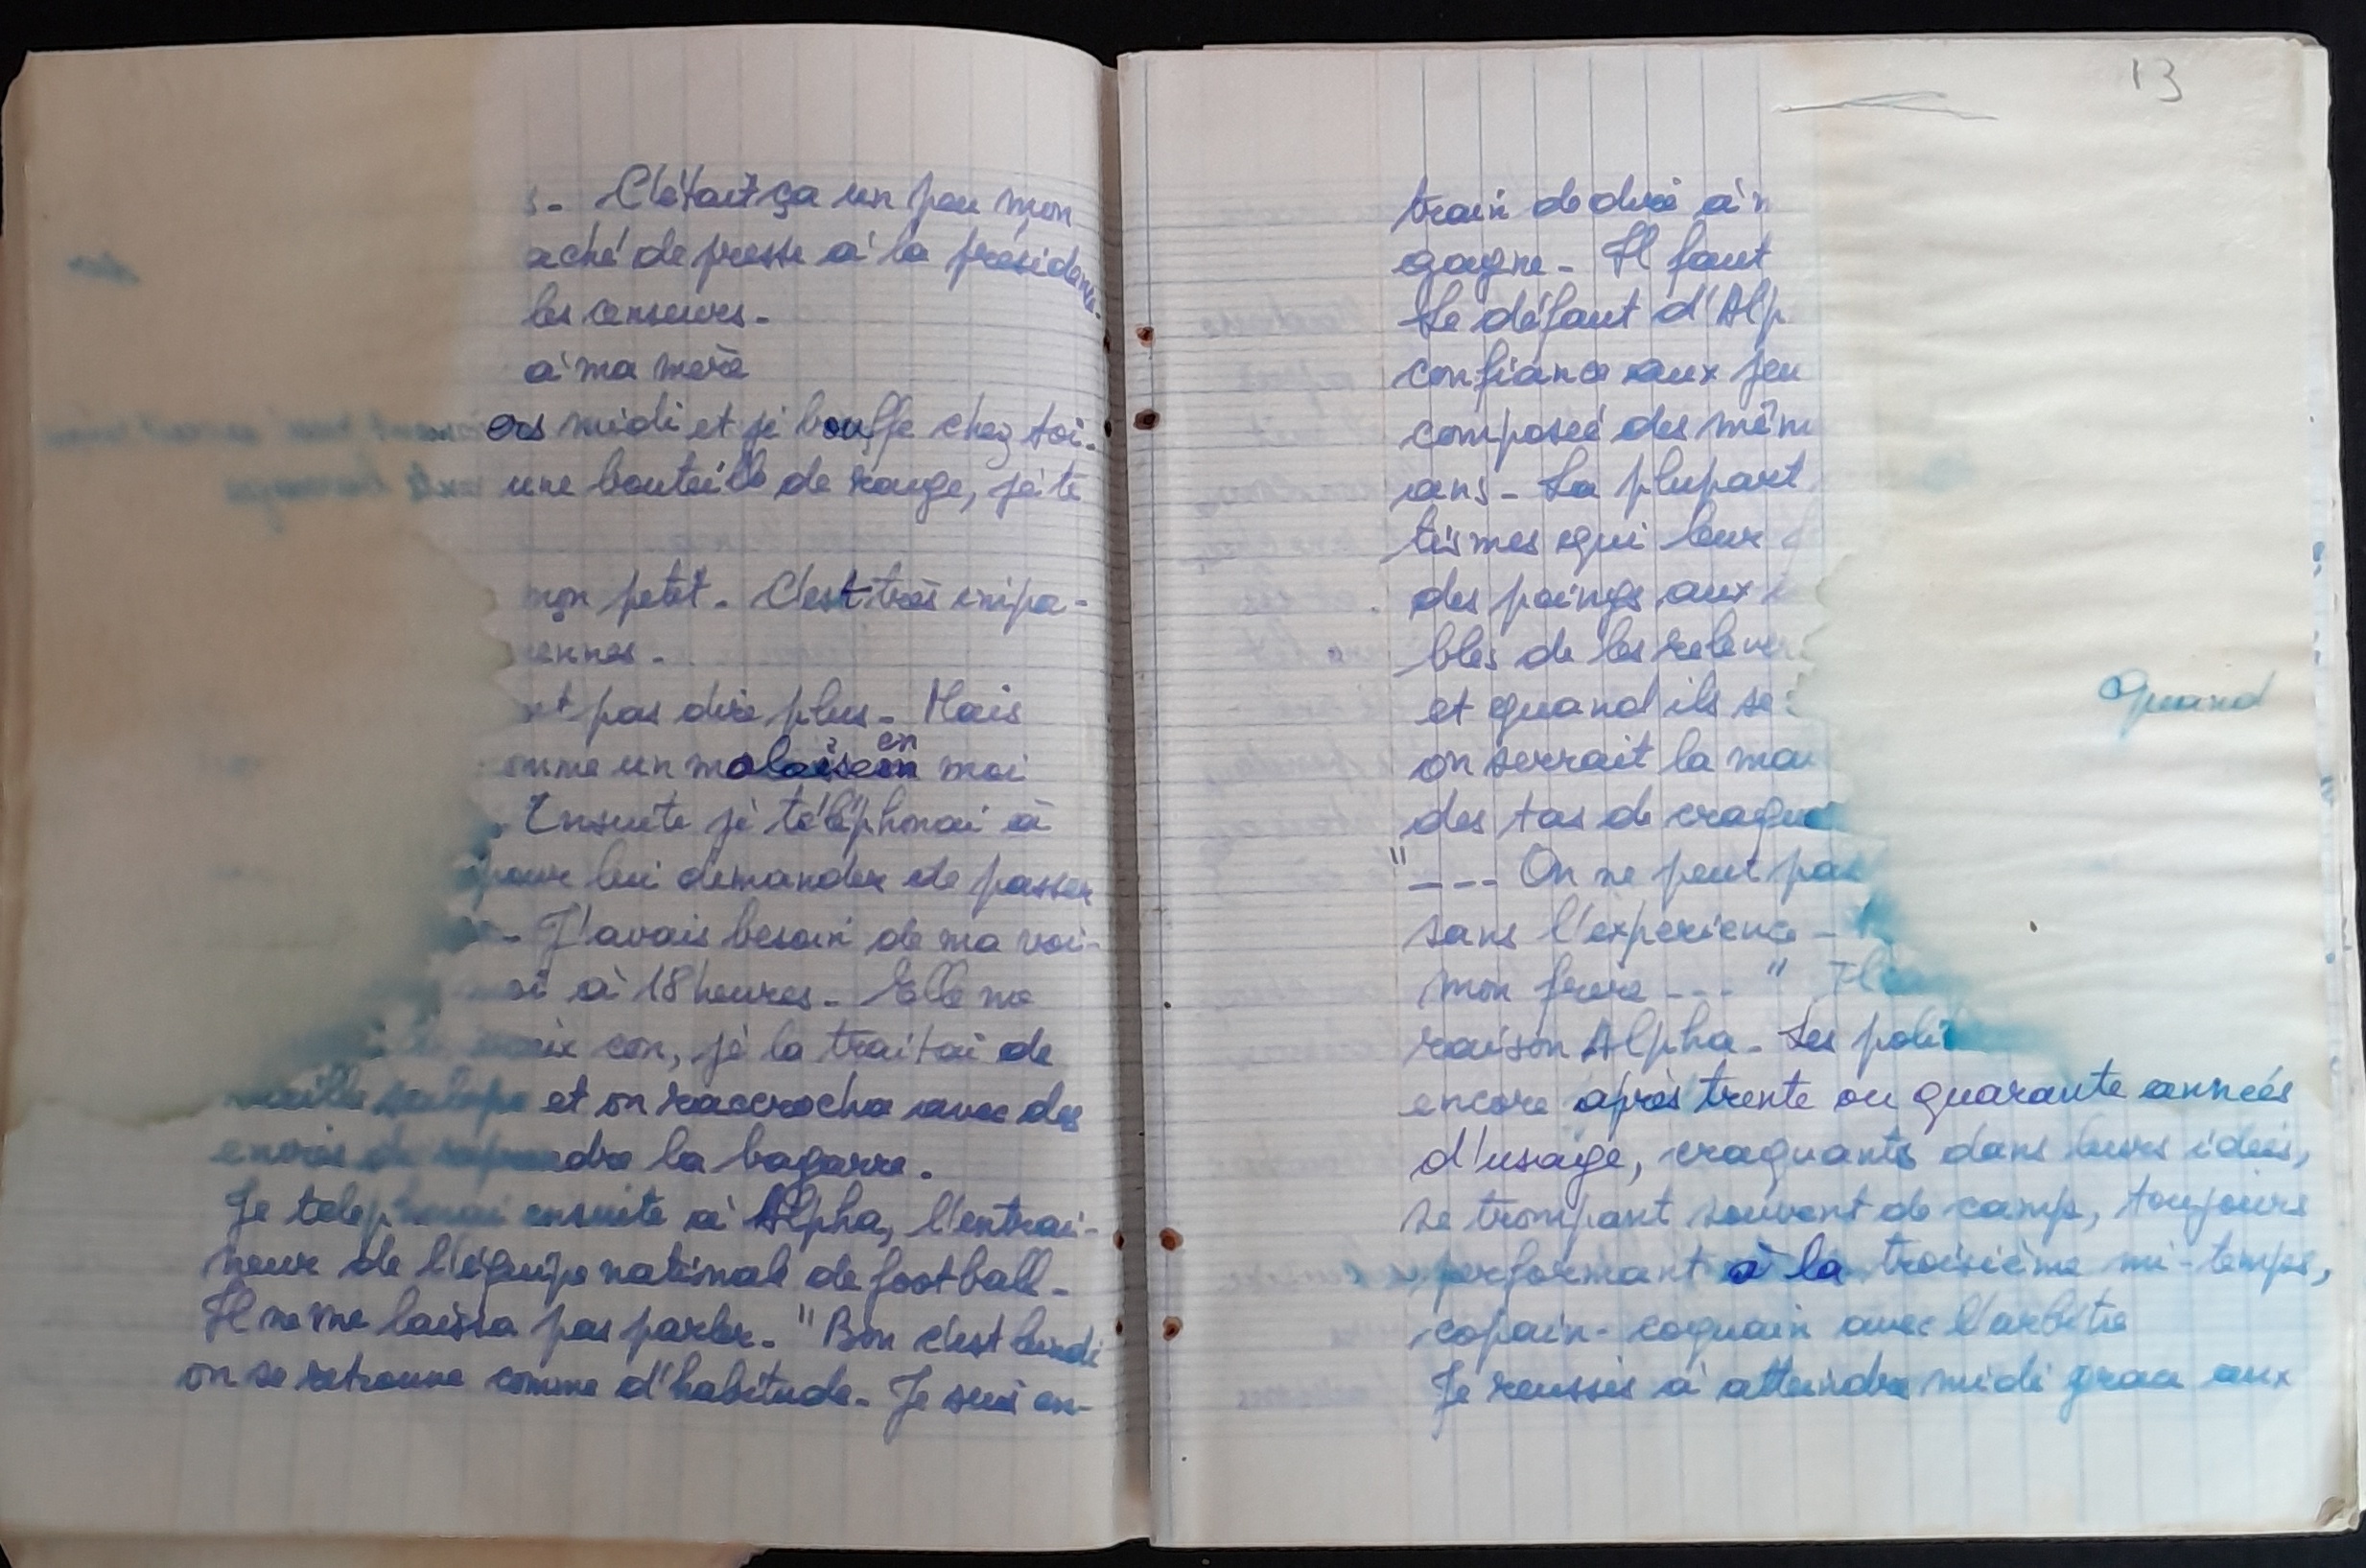 s. C'était ça un peu mon
aché de presse à la présidence.
les censeurs.
à ma mère
ers midi et je bouffe chez toi.
une bouteille de rouge, je te
mon petit. C'est très impo-
iennes.
et pas dire plus. Mais
en
omme un malaise en moi
Ensuite je téléphonai à
pour lui demander de passer
. J'avais besoin de ma voi-
oi à 18 heures. Elle me
con, je la traitai de
et on raccrocha avec des
envies de reprendre la bagarre.
Je telephonai ensuite à Alpha, l'entrai-
neur de l'équipe nationale de football.
Il ne me laissa pas parler. "Bon c'est lundi
on se retrouve comme d'habitude. Je suis en-
13
train de dire à n
gagne. Il faut
Le défaut d'Alp
confiance aux jeu
composée des mêm
ans. La plupart
tismes qui leur
des poings aux
bles de les relever
et quand ils se
Quand
on serrait la mai
des tas de craque
"--- On ne peut pas
sans l'expérience -
mon frère ---" Il
raison Alpha. Les poli
encore après trente ou quarante années
d'usage, craquants dans leurs idées,
se trompant souvent de camp, toujours
performant à la troisième mi-temps,
copain-coquain avec l'arbitre
Je reussis à atteindre midi grace aux